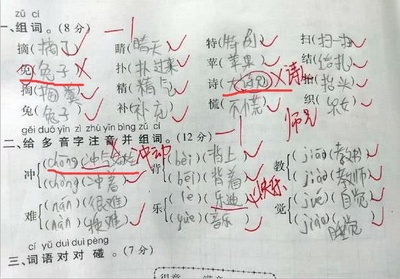 zǔ cí
一、组词。(8分) -1
摘(摘了) 睛(晴天) 特(特别) 扫(扫一扫)
兔(兔子) 扑(扑过来) 苹(苹果) 结
掏 精(精气) 诗 诗 抬(抬头)
兔(兔子) 补(补充) 慌(不慌) 织
gěi duō yīn zì zhù yīn bìng zǔ cí
二、给多音字注音并组词。(12分) -1
冲 (chōng)( 冲动 背 (bèi)(背上) 教 (jiāo)(教书)
(chòng)(冲着) (bēi)(背着) (jiào)(教师)
难 (nán)(很难) 乐 (lè)( 快乐 觉 (jué)(自觉)
(nàn)( (yuè)(音乐) (jiào)(睡觉)
cí yǔ duì duì pèng
三、词语对对碰。(7分)